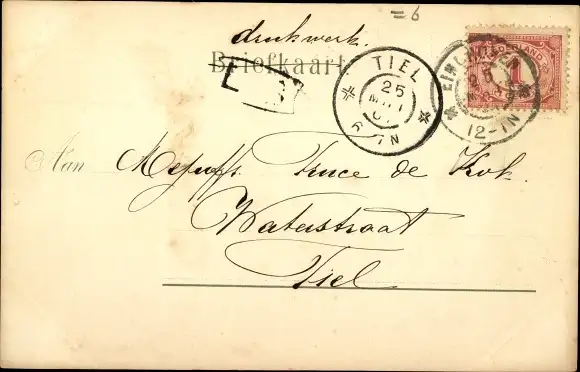 =6
drukwerk.
Briefkaart
TIEL
25
7N
EINDHOVEN
12-1N
NEDERLAND
1
Aan Mejuffr. Truce de Kok.
Waterstraat
Tiel